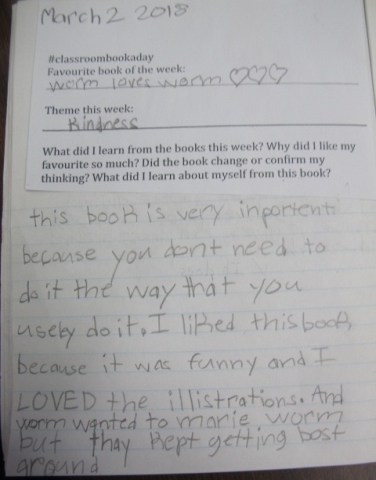 March 2 2018
#classroombookaday
Favourite book of the week:
worm loves worm ♡♡♡
Theme this week:
Kindness
What did I learn from the books this week? Why did I like my
favourite so much? Did the book change or confirm my
thinking? What did I learn about myself from this book?
this book is very inportent
because you dont need to
do it the way that you
usely do it. I liked this book,
because it was funny and I
LOVED the illistrations. And
worm wanted to marie worm
but thay kept getting bost
around